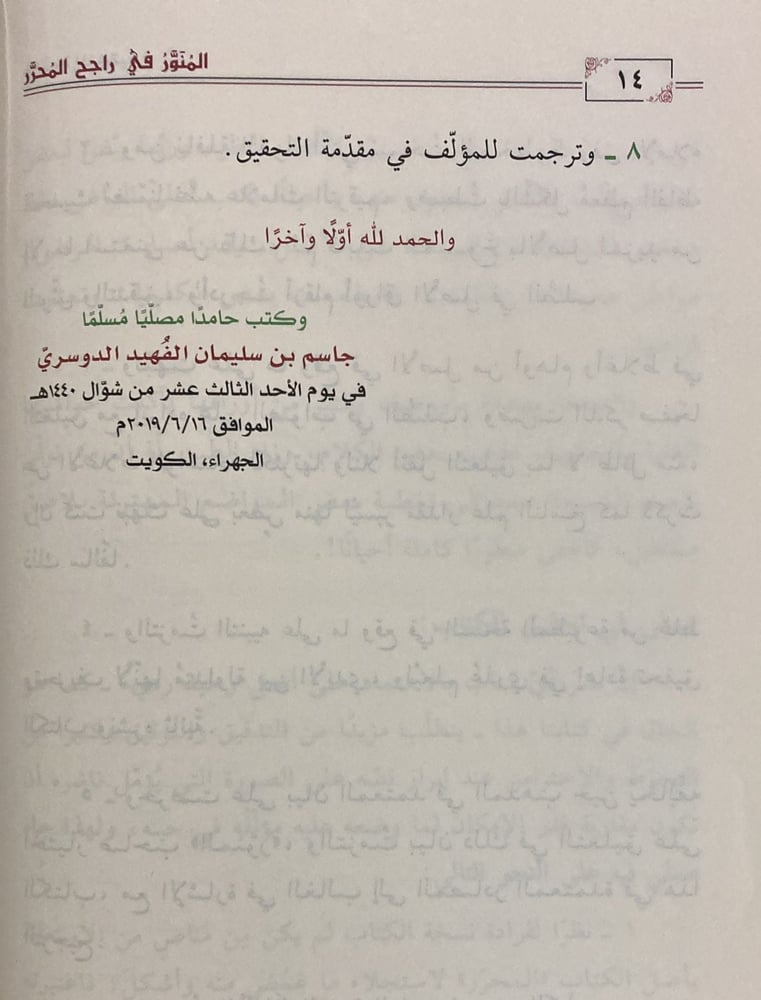 المُنَوَّرُ فيْ راجح المُحرَّر
١٤
٨ ـ وترجمت للمؤلّف في مقدّمة التحقيق.
والحمد لله أوّلًا وآخرًا
وكتب حامدًا مصلّيًا مُسلّمًا
جاسم بن سليمان الفُهيد الدوسريّ
في يوم الأحد الثالث عشر من شوّال ١٤٤٠هـ
الموافق ٢٠١٩/٦/١٦م
الجهراء، الكويت